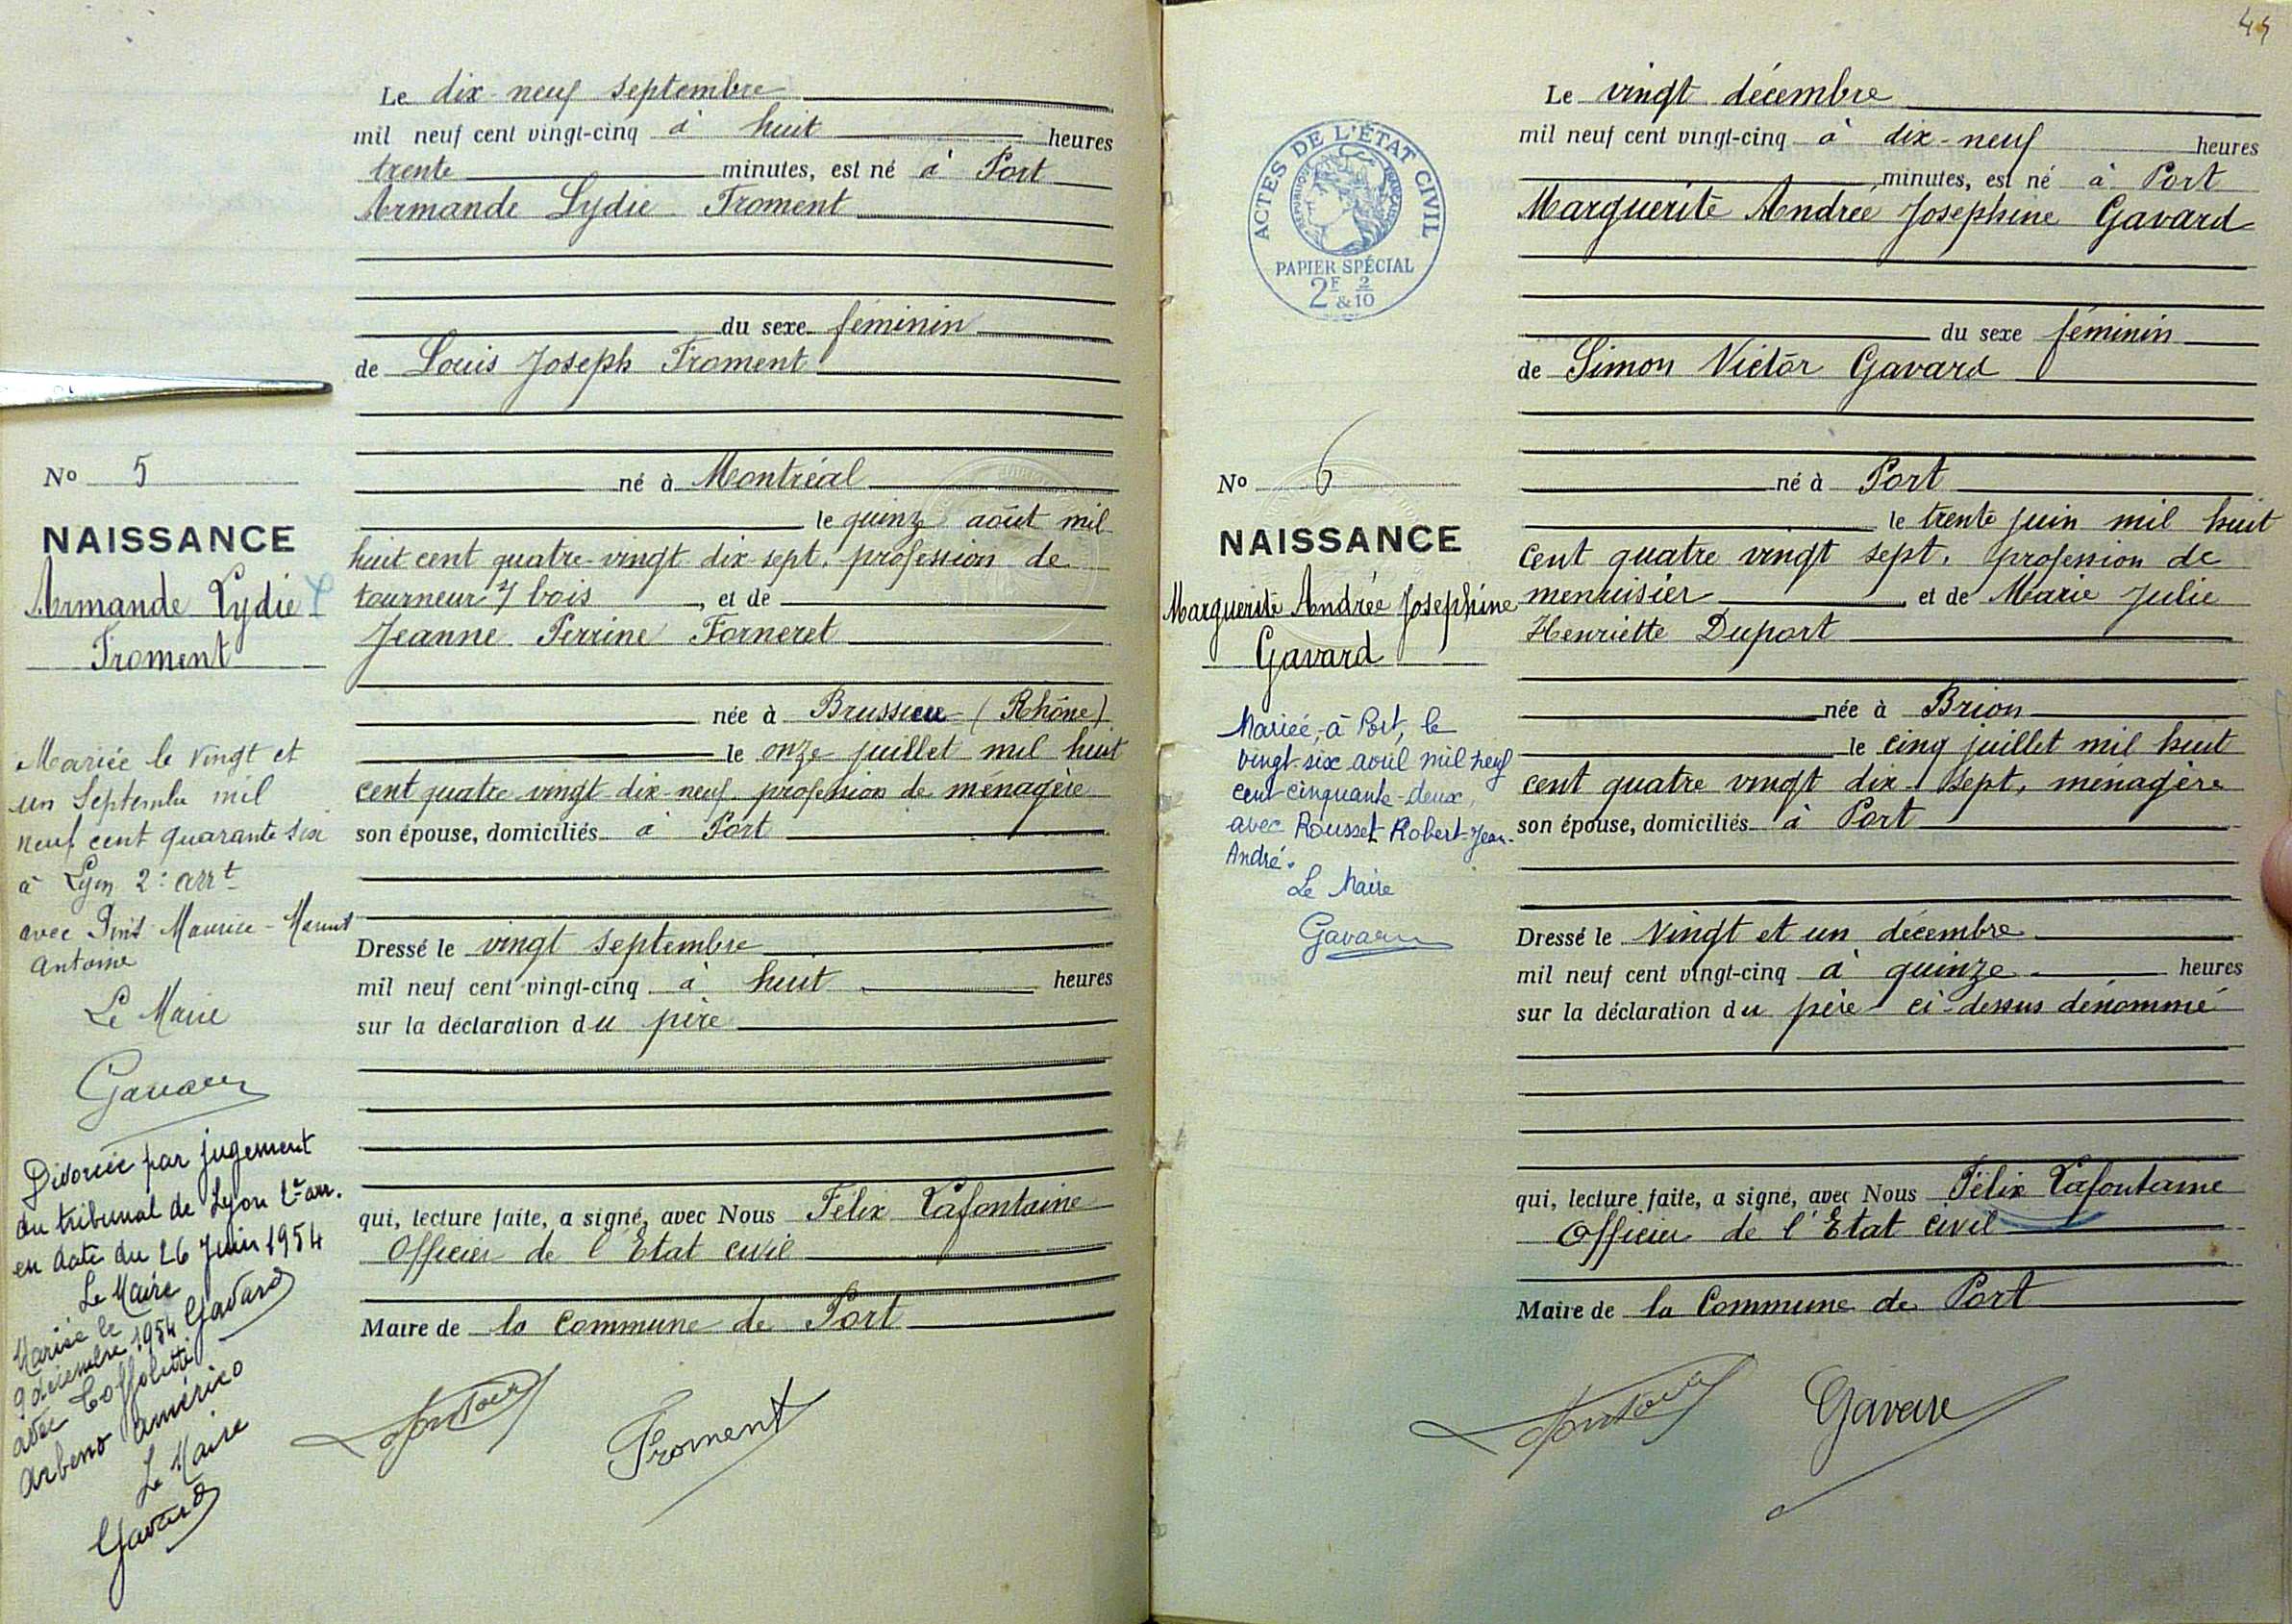 Le dix-neuf septembre
mil neuf cent vingt-cinq à huit heures
trente minutes, est né à Port
Armande Lydie Froment
du sexe féminin
de Louis Joseph Froment
né à Montréal
le quinze août mil
huit cent quatre-vingt dix-sept, profession de
tourneur bois, et de
Jeanne Perrine Forneret
née à Brussieu (Rhône)
le onze juillet mil huit
cent quatre vingt dix-neuf profession de ménagère
son épouse, domiciliés à Port
Dressé le vingt septembre
mil neuf cent vingt-cinq à huit heures
sur la déclaration du père
qui, lecture faite, a signé, avec Nous Félix Lafontaine
Officier de l'Etat civil
Maire de la Commune de Port
Froment
No 5
NAISSANCE
Armande Lydie
Froment
Mariée le vingt et
un Septembre mil
neuf cent quarante six
à Lyon 2e arrt
avec Maurice-
Antoine
Le Maire
Gavard
Divorcée par jugement
du tribunal de Lyon arr.
en date du 26 Juin 1954
Le Maire
Gavard
Mariée le
9 décembre 1954
avec
Arbeno Américo
Le Maire
Gavard
44
Le vingt décembre
mil neuf cent vingt-cinq à dix-neuf heures
minutes, est né à Port
Marguerite Andrée Josephine Gavard
du sexe féminin
de Simon Victor Gavard
né à Port
le trente juin mil huit
cent quatre vingt sept, profession de
menuisier et de Marie Julie
Henriette Duport
née à Brion
le cinq juillet mil huit
cent quatre vingt dix-sept, ménagère
son épouse, domiciliés à Port
Dressé le vingt et un décembre
mil neuf cent vingt-cinq à quinze heures
sur la déclaration du père ci-dessus dénommé
qui, lecture faite, a signé, avec Nous Félix Lafontaine
Officier de l'Etat civil
Maire de la Commune de Port
Gavard
ACTES DE L'ÉTAT CIVIL
RÉPUBLIQUE FRANÇAISE
PAPIER SPÉCIAL
2F & 2/10
No 6
NAISSANCE
Marguerite Andrée Josephine
Gavard
Mariée, à Port, le
vingt-six avril mil neuf
cent cinquante-deux,
avec Rousset Robert-Jean-
André.
Le Maire
Gavard